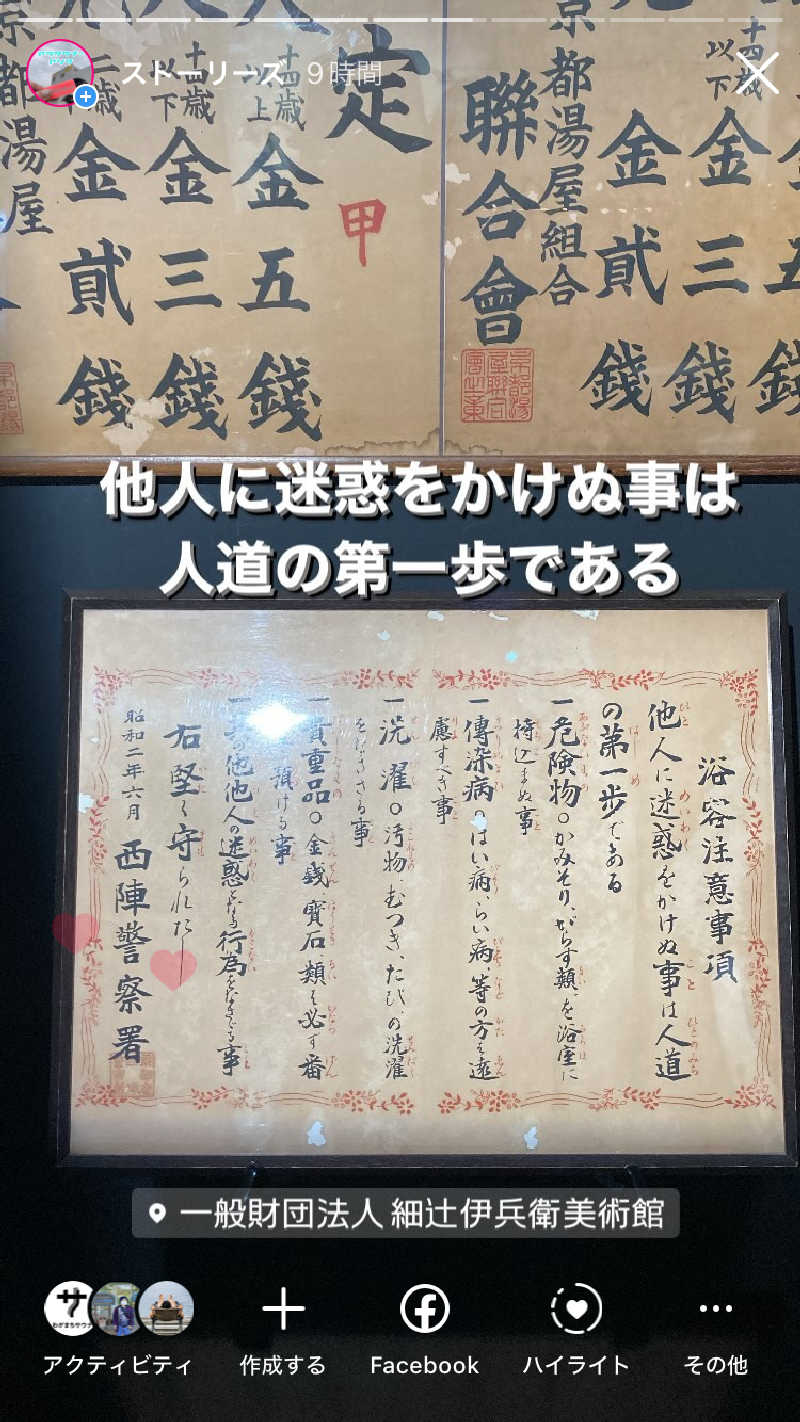 ストーリーズ 9時間
定
甲
十四歳以上 金五錢
十歳以下 金三錢
二歳 金貳錢
京都湯屋
十四歳以下 金
金三錢
金貳錢
京都湯屋組合
聯合會
他人に迷惑をかけぬ事は
人道の第一歩である
浴客注意事項
他人に迷惑をかけぬ事は人道
の第一歩である
一危険物。かみそり、がらす類、を浴室に
持込まぬ事
一傳染病。はい病、らい病、等の方は遠
慮すべき事
一洗濯。汚物、むつき、たび、の洗濯
をなさざる事
一貴重品。金錢寳石類は必ず番
預ける事
其の他他人の迷惑となる行為をなさざる事
右堅く守られたし
昭和二年六月 西陣警察署
一般財団法人 細辻伊兵衛美術館
アクティビティ
作成する
Facebook
ハイライト
その他